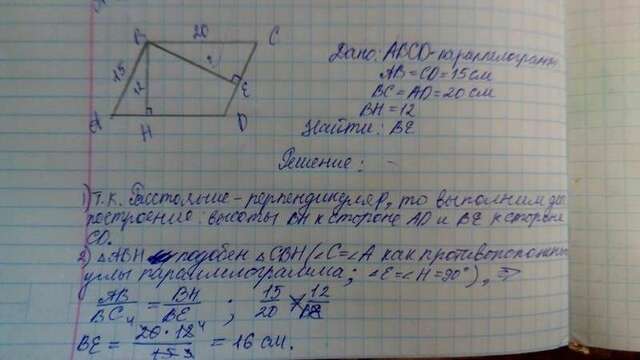 B 20 C
15
12
?
E
A H D
Дано: ABCD-параллелограмм
AB=CD=15см
BC=AD=20см
BH=12
Найти: BE
Решение:
1) Т.К. Расстояние-перпендикуляр, то выполним доп.
построение: высоты BH к стороне AD и BE к стороне
CD.
2) △ABH подобен △CBH (∠C=∠A как противоположные
углы параллелограмма; ∠E=∠H=90°), ⇒
AB/BC = BH/BE ; 15/20 = 12/BE
BE = 20·12/15 = 16 см.